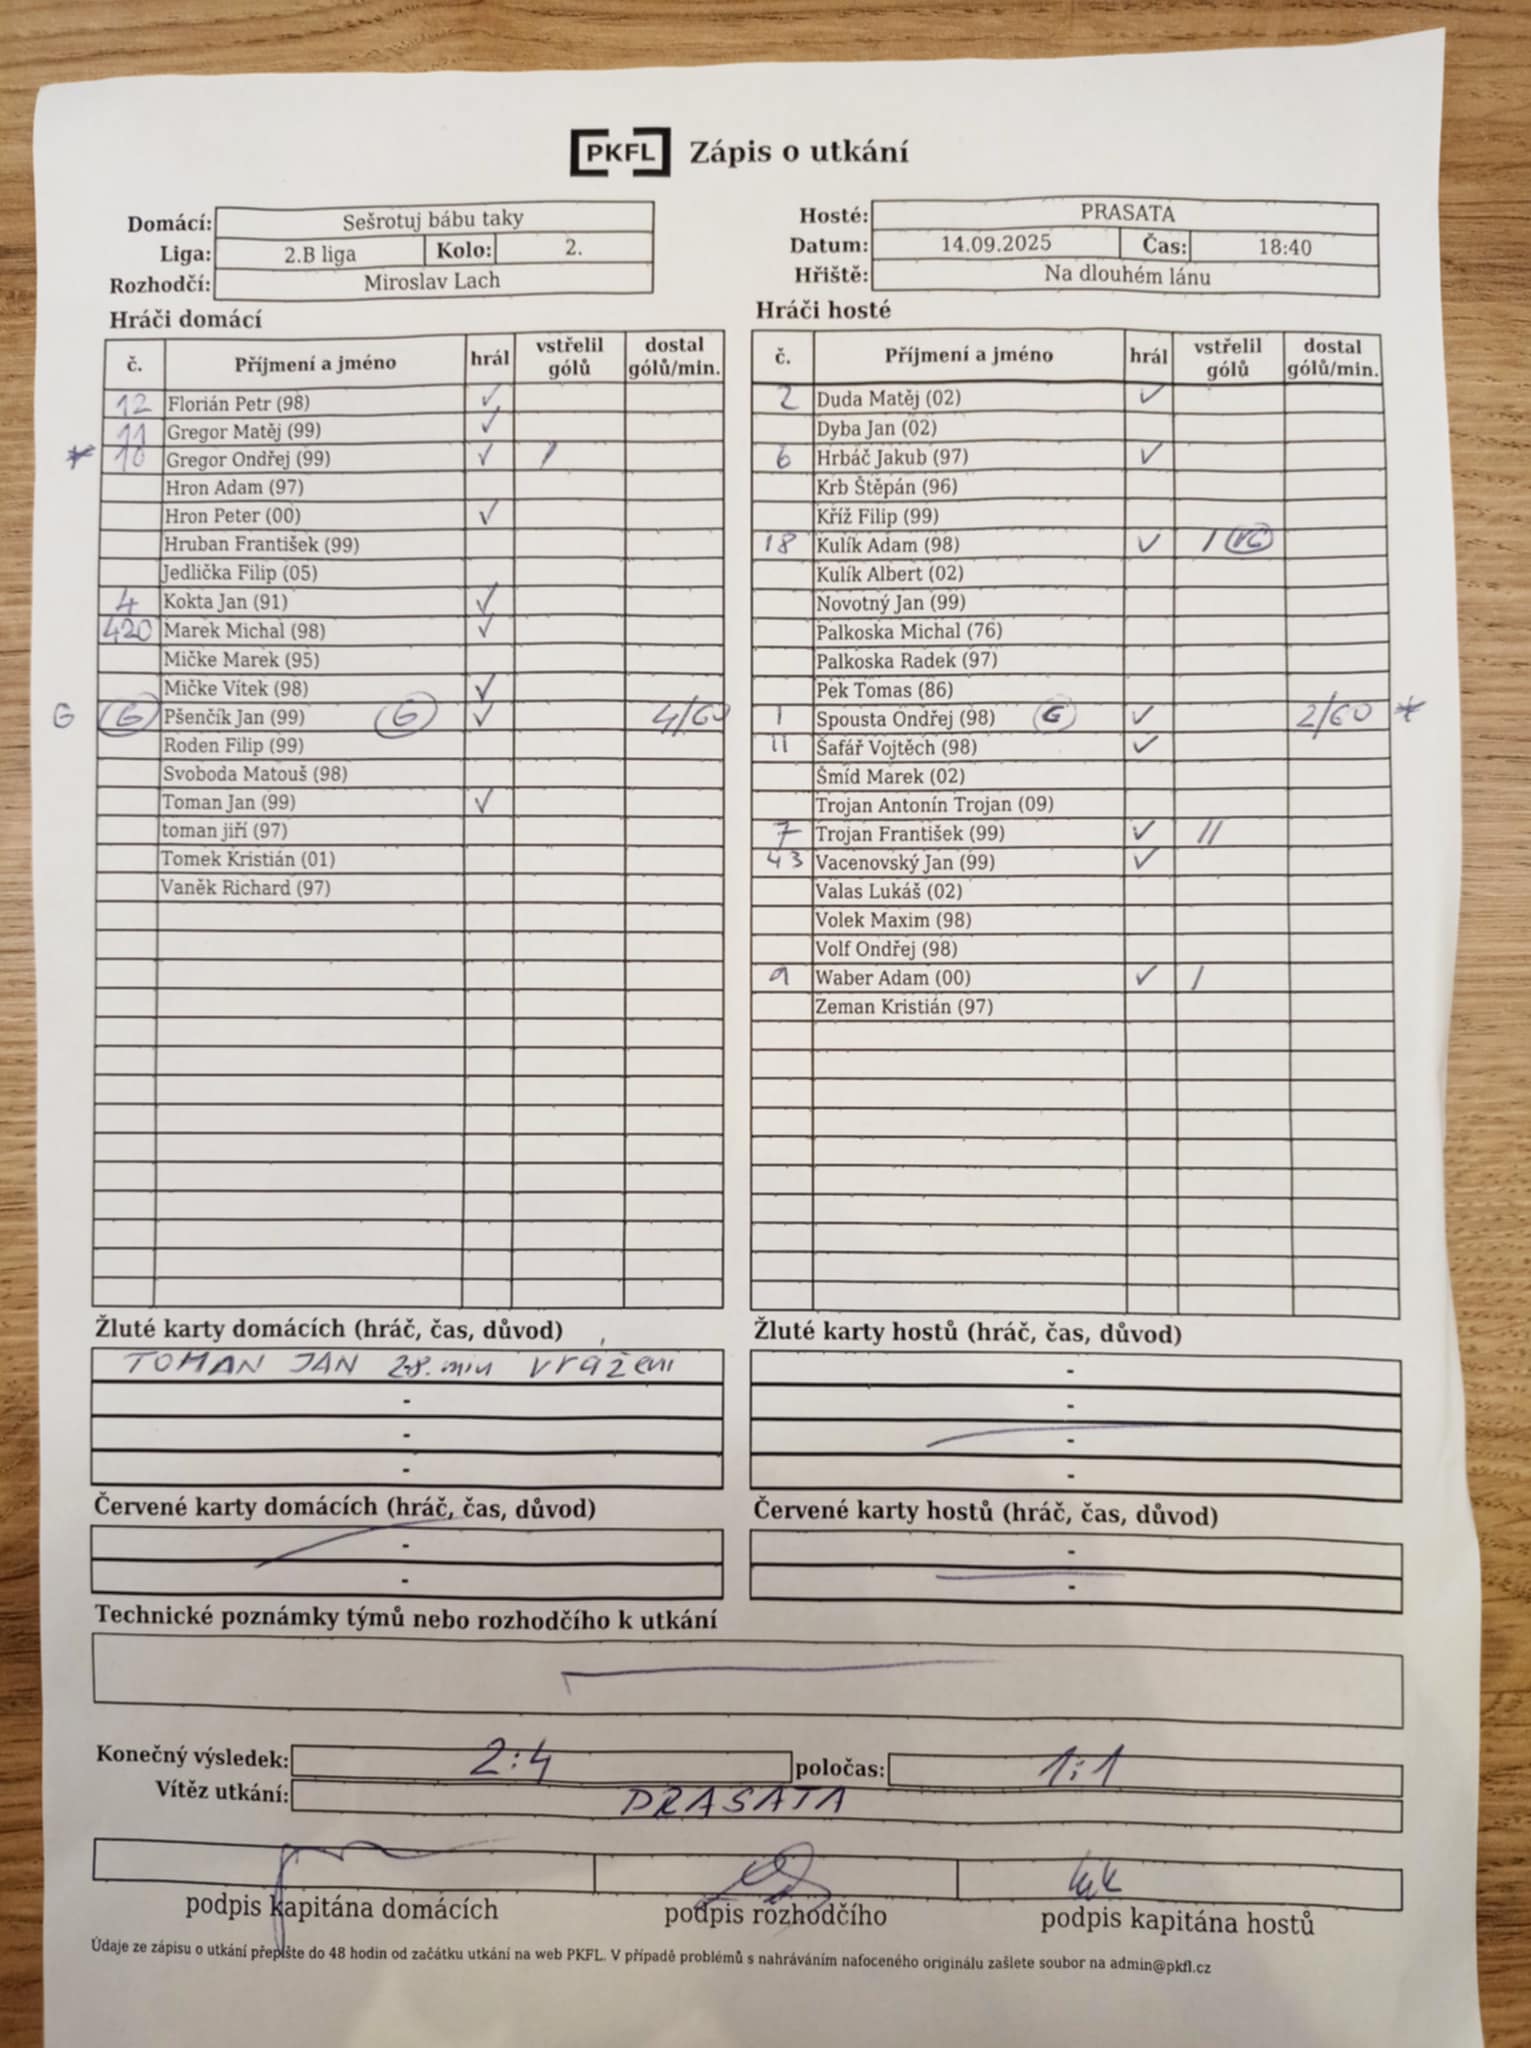 PKFL Zápis o utkání
Domácí: Sešrotuj bábu taky
Liga: 2.B liga Kolo: 2.
Rozhodčí: Miroslav Lach
Hosté: PRASATA
Datum: 14.09.2025 Čas: 18:40
Hřiště: Na dlouhém lánu
Hráči domácí
č. Příjmení a jméno hrál vstřelil gólů dostal gólů/min.
12 Florián Petr (98) ✓
11 Gregor Matěj (99) ✓
* 10 Gregor Ondřej (99) ✓ /
Hron Adam (97)
Hron Peter (00) ✓
Hruban František (99)
Jedlička Filip (05)
4 Kokta Jan (91) ✓
420 Marek Michal (98) ✓
Mičke Marek (95)
Mičke Vítek (98) ✓
G G Pšenčík Jan (99) G ✓ 4/60
Roden Filip (99)
Svoboda Matouš (98)
Toman Jan (99) ✓
toman jiří (97)
Tomek Kristián (01)
Vaněk Richard (97)
Hráči hosté
č. Příjmení a jméno hrál vstřelil gólů dostal gólů/min.
2 Duda Matěj (02) ✓
Dyba Jan (02)
6 Hrbáč Jakub (97) ✓
Krb Štěpán (96)
Kříž Filip (99)
18 Kulík Adam (98) ✓ /
Kulík Albert (02)
Novotný Jan (99)
Palkoska Michal (76)
Palkoska Radek (97)
Pek Tomas (86)
1 Spousta Ondřej (98) G ✓ 2/60 *
11 Šafář Vojtěch (98) ✓
Šmíd Marek (02)
Trojan Antonín Trojan (09)
7 Trojan František (99) ✓ //
43 Vacenovský Jan (99) ✓
Valas Lukáš (02)
Volek Maxim (98)
Volf Ondřej (98)
9 Waber Adam (00) ✓ /
Zeman Kristián (97)
Žluté karty domácích (hráč, čas, důvod)
TOMAN JAN 28. min vrážení
-
-
-
Žluté karty hostů (hráč, čas, důvod)
-
-
-
-
Červené karty domácích (hráč, čas, důvod)
-
-
Červené karty hostů (hráč, čas, důvod)
-
-
Technické poznámky týmů nebo rozhodčího k utkání
Konečný výsledek: 2:4 poločas: 1:1
Vítěz utkání: PRASATA
podpis kapitána domácích podpis rozhodčího podpis kapitána hostů
Údaje ze zápisu o utkání přepište do 48 hodin od začátku utkání na web PKFL. V případě problémů s nahráváním nafoceného originálu zašlete soubor na admin@pkfl.cz